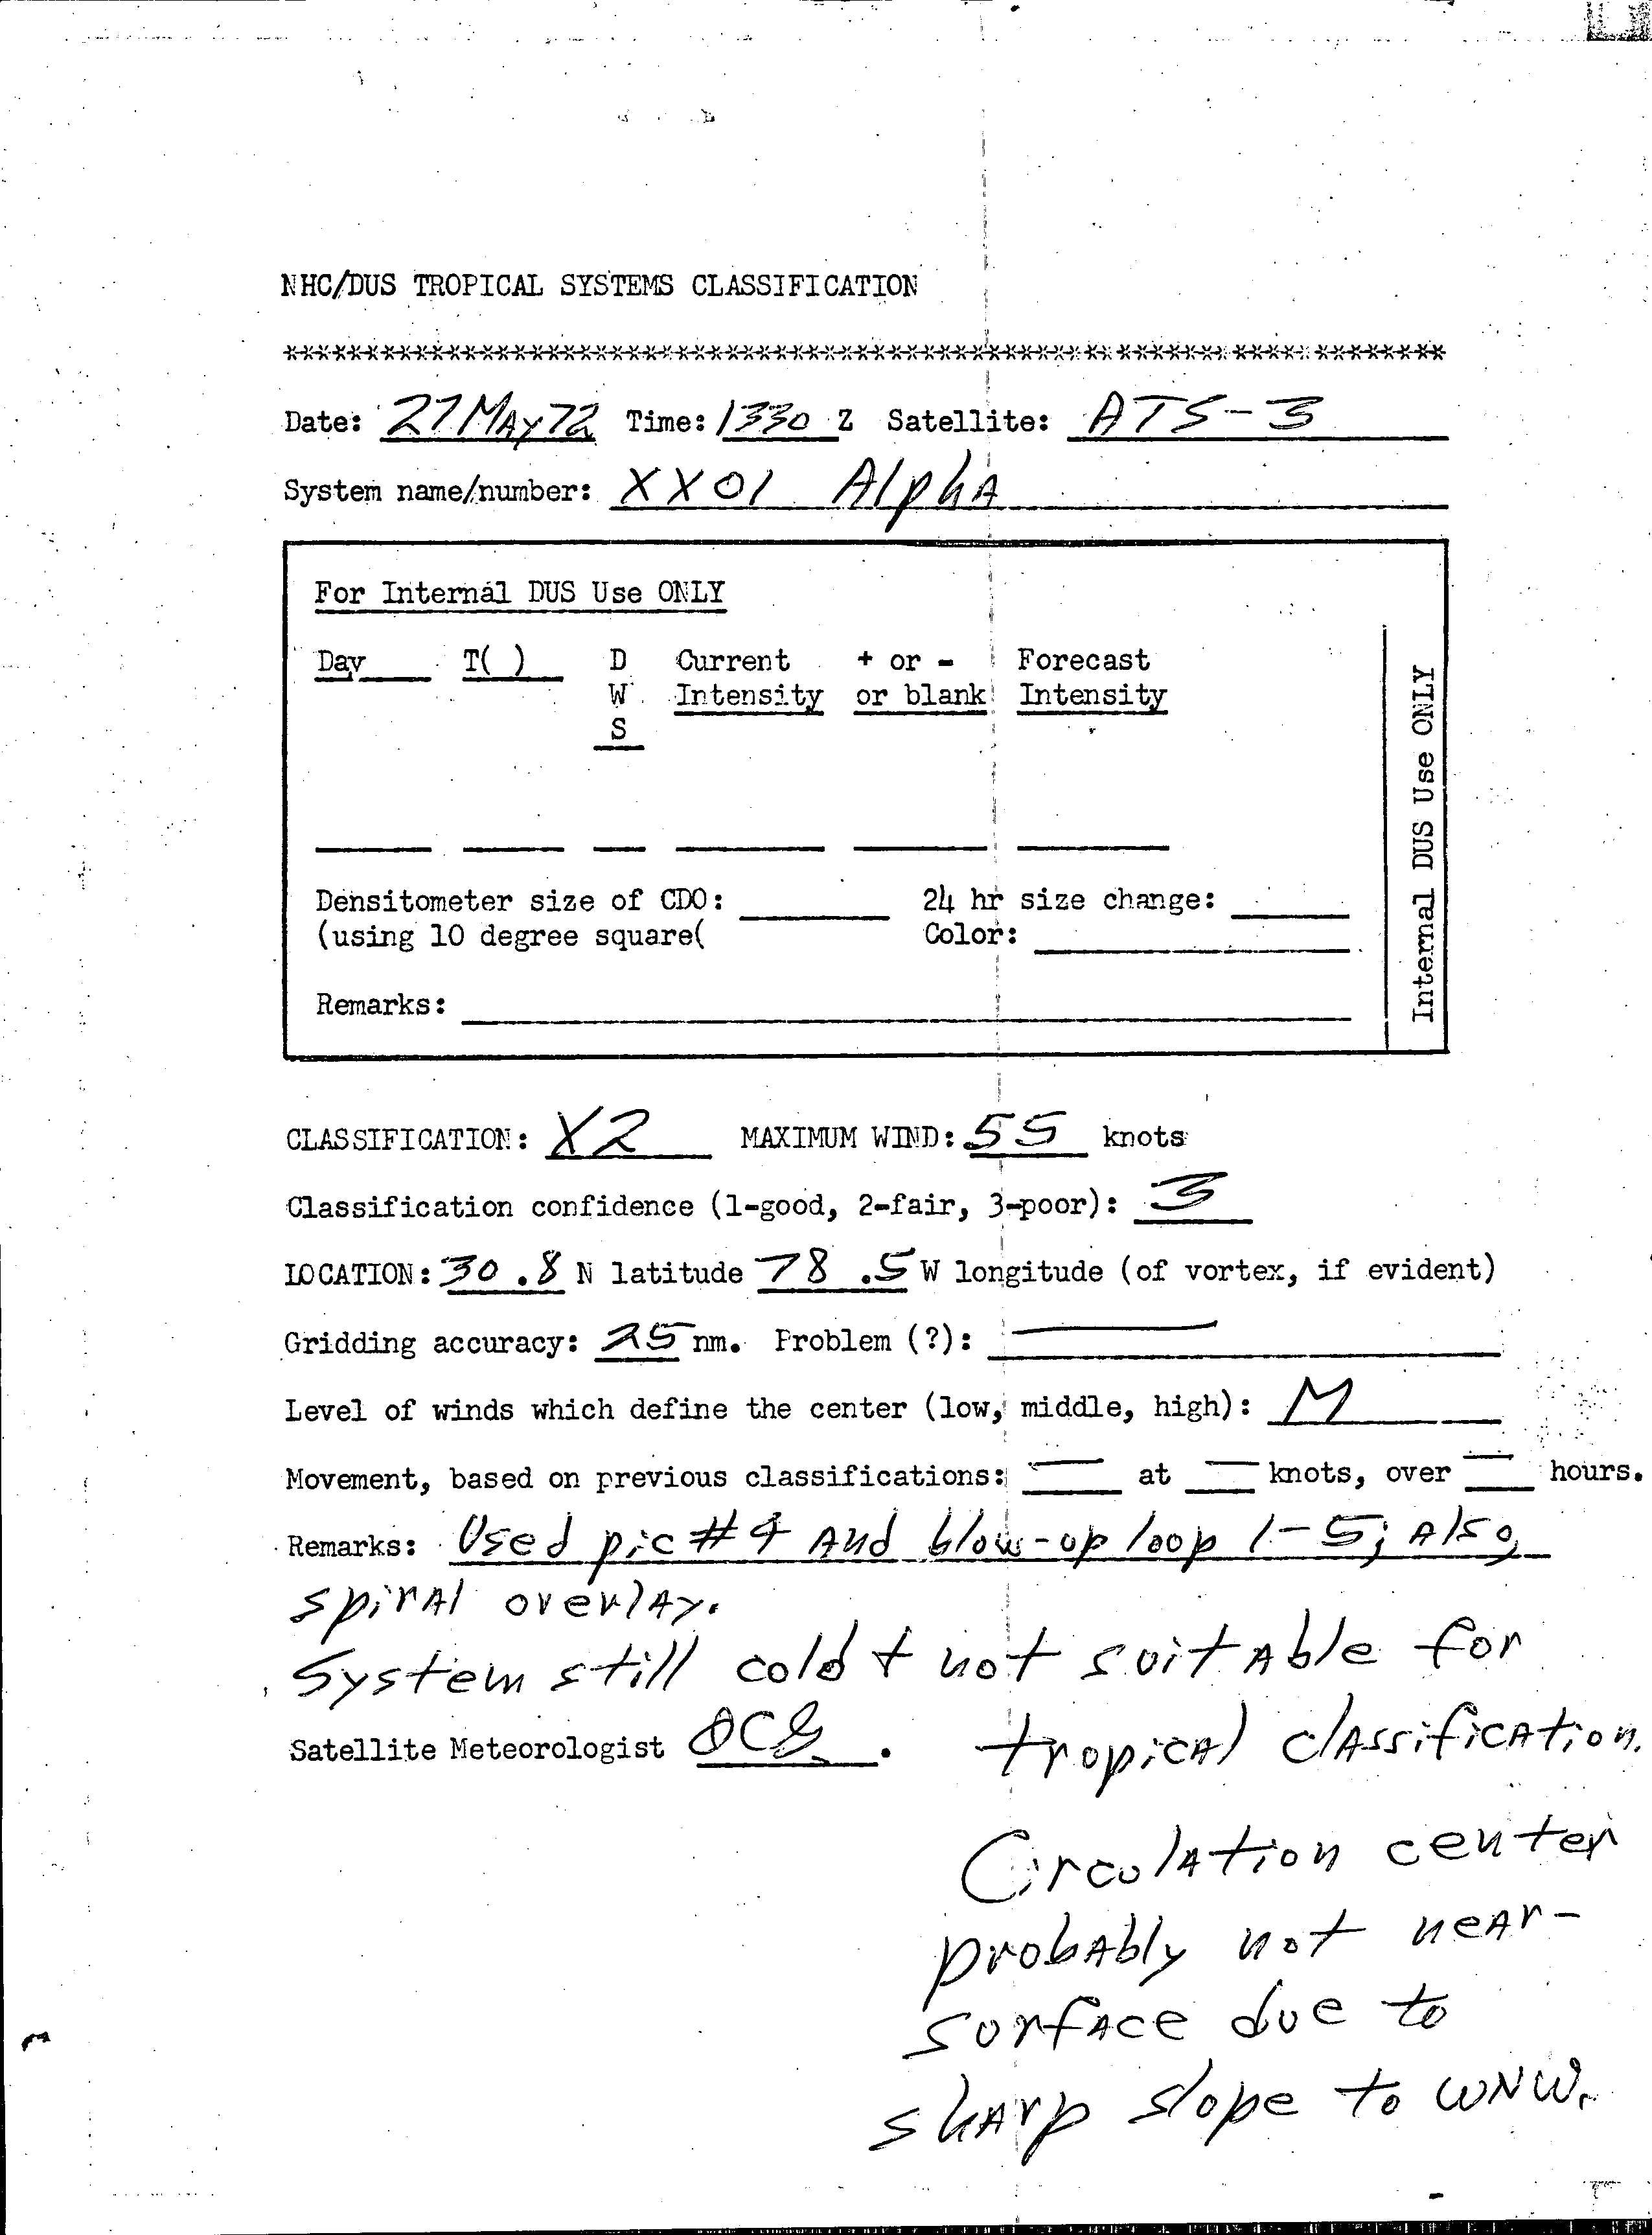 NHC/DUS TROPICAL SYSTEMS CLASSIFICATION
***********************************************************************
Date: 27 MAY 72 Time: 1330 Z Satellite: ATS-3
System name/number: XX01 Alpha
For Internal DUS Use ONLY
Day T( ) D Current + or - Forecast
W Intensity or blank Intensity
S
Densitometer size of CDO: 24 hr size change:
(using 10 degree square( Color:
Remarks:
Internal DUS Use ONLY
CLASSIFICATION: X2 MAXIMUM WIND: 55 knots
Classification confidence (1-good, 2-fair, 3-poor): 3
LOCATION: 30.8 N latitude 78.5 W longitude (of vortex, if evident)
Gridding accuracy: 25 nm. Problem (?): —
Level of winds which define the center (low, middle, high): M
Movement, based on previous classifications: — at — knots, over — hours.
Remarks: Used pic #4 and blow-up loop 1-5; also,
spiral overlay.
System still cold + not suitable for
tropical classification.
Satellite Meteorologist .
Circulation center
probably not near-
surface due to
sharp slope to WNW.